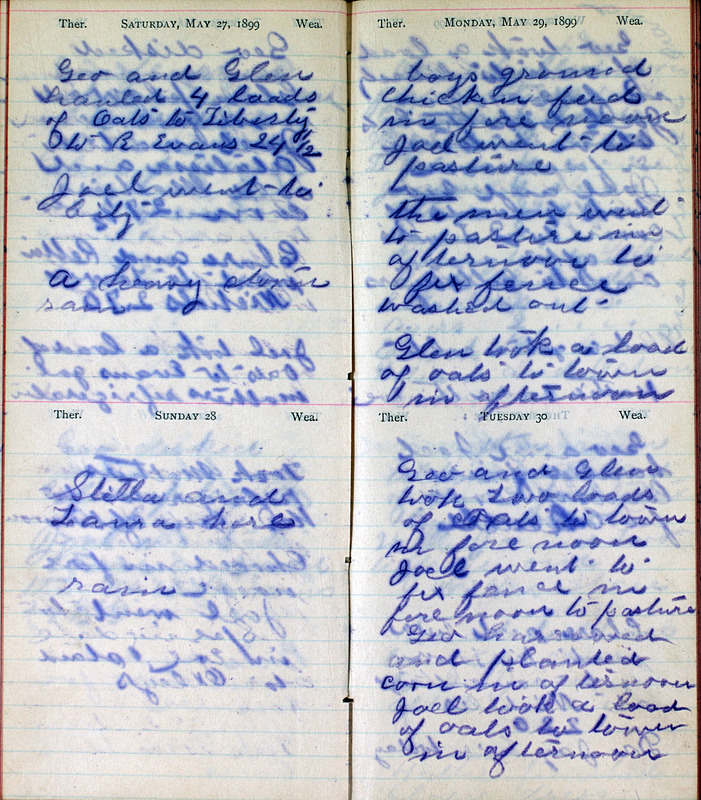 Ther. SATURDAY, MAY 27, 1899 Wea.
Geo and Glen
hauled 4 loads
of Oats to Liberty
W E Evans 24 1/2
Joel went to
City
a heavy down
rain
Ther. SUNDAY 28 Wea.
Stella and
Laura here
rain
Ther. MONDAY, MAY 29, 1899 Wea.
boys ground
chicken feed
in fore noon
Joel went to
pasture
the men went
to pasture in
afternoon to
fix fence
washed out
Glen took a load
of oats to town
in afternoon
Ther. TUESDAY 30 Wea.
Geo and Glen
took two loads
of Oats to town
in fore noon
Joel went to
fix fence in
fore noon to pasture
Geo harrowed
and planted
corn in afternoon
Joel took a load
of oats to town
in afternoon